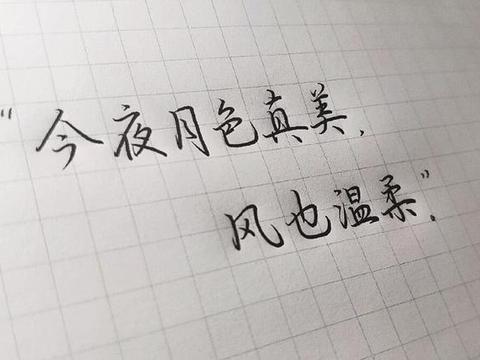 “今夜月色真美,
风也温柔”.